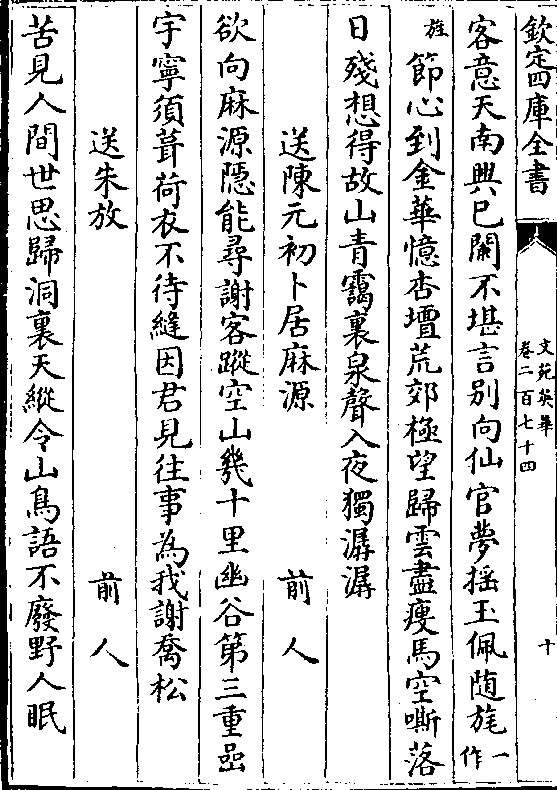 欽定四庫全書
文苑英華
卷二百七十四
十
客意天南興已闌不堪言別向仙官夢搖玉佩随旄一作
旌節心到金華憶杏壇荒郊極望歸雲盡瘦馬空嘶落
日殘想得故山青靄裏泉聲入夜獨潺潺
送陳元初卜居麻源 前人
欲向麻源隠能尋謝客蹤空山幾十里幽谷第三重嵓
宇寧須葺荷衣不待縫因君見往事為我謝喬松
送朱放 前人
苦見人間世思歸洞裏天縱令山鳥語不廢野人眠